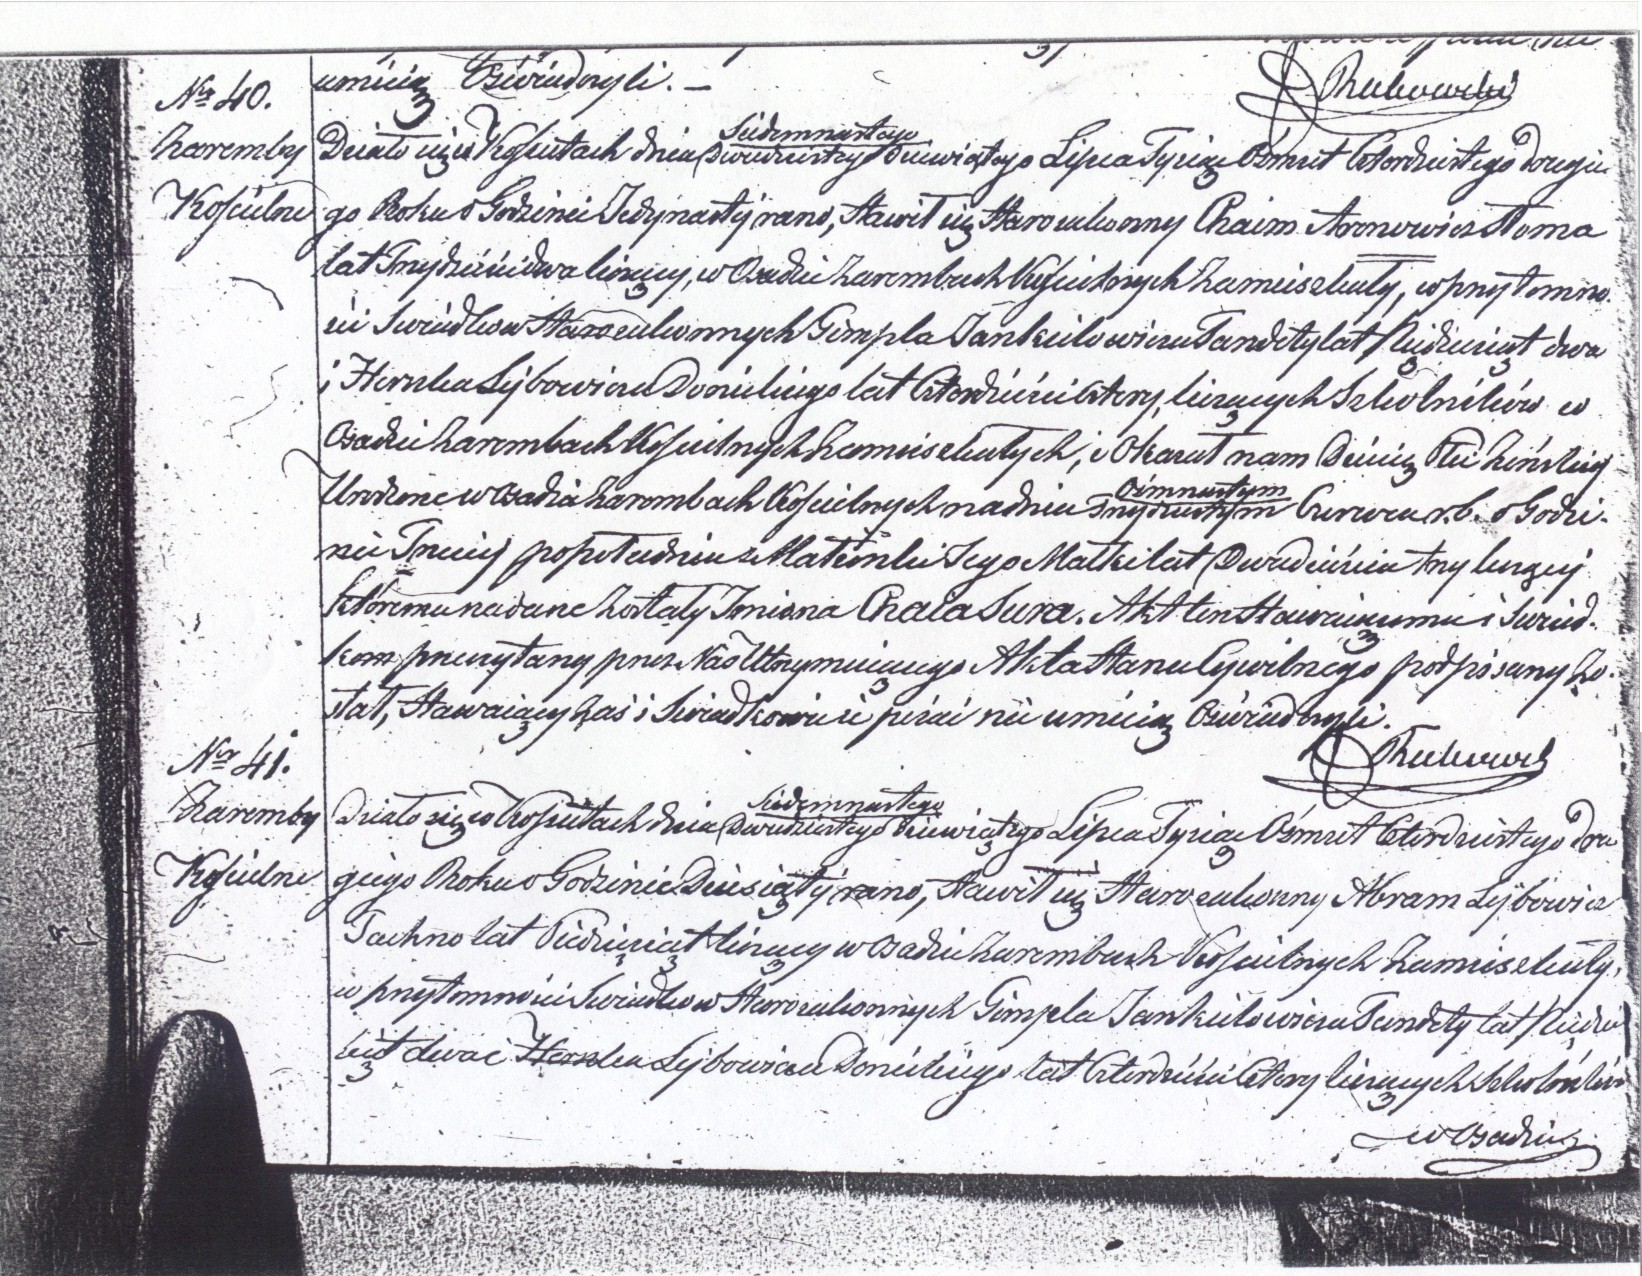 umieią Oświadczyli. –
Nr 40.
Zaremby
Kościelne
Siedemnastego
Działo się w Kossutach dnia Dwudziestego Dziewiątego Lipca Tysiąc Ośmset Czterdziestego drugie
go Roku o Godzinie Jedynasty rano, stawił się Starozakonny Chaim Aronowicz Słoma
lat Trzydzieści dwa liczący, w Osadzie Zarembach Kościelnych Zamieszkały, w przytomno
ści Swiadków Starozakonnych Gimpla Jankielowicza Tandety lat Piędziesiąt dwa
i Herszka Leybowicza Donickiego lat Czterdzieści Cztery, liczących Szkolników w
Osadzie Zarembach Kościelnych Zamieszkałych, i Okazał nam Dziecię Płci Żeńskiey
Ośmnastym
Urodzone w Osadzie Zarembach Kościelnych na dniu Trzydziestym Czerwca r. b. o Godzi-
nie Trzeciy popołudniu z Małżonki Jego Matki lat Dwadzieścia trzy liczący
któremu nadane Zostały Imiona Chaia Sura. Akt ten Stawaiącemu i Swiad-
kom przeczytany przez Nas Utrzymuiącego Akta Stanu Cywilnego podpisany Zo-
stał, Stawaiący Zaś i Swiadkowie iż pisać nie umieią Oświadczyli.
Nr 41.
Zaremby
Kościelne
Siedemnastego
Działo się w Kossutach dnia Dwudziestego Dziewiątego Lipca Tysiąc Ośmset Czterdziestego dru
giego Roku o Godzinie Dziesiąty rano, Stawił się Starozakonny Abram Leybowicz
lat Pięćdziesiąt liczący w Osadzie Zarembach Kościelnych Zamieszkały,
w przytomności Swiadków Starozakonnych Gimpla Jankielowicza Tandety lat Piędzie
siąt dwa i Herszka Leybowicza Donickiego lat Czterdzieści Cztery liczących Szkolników
w Osadzie